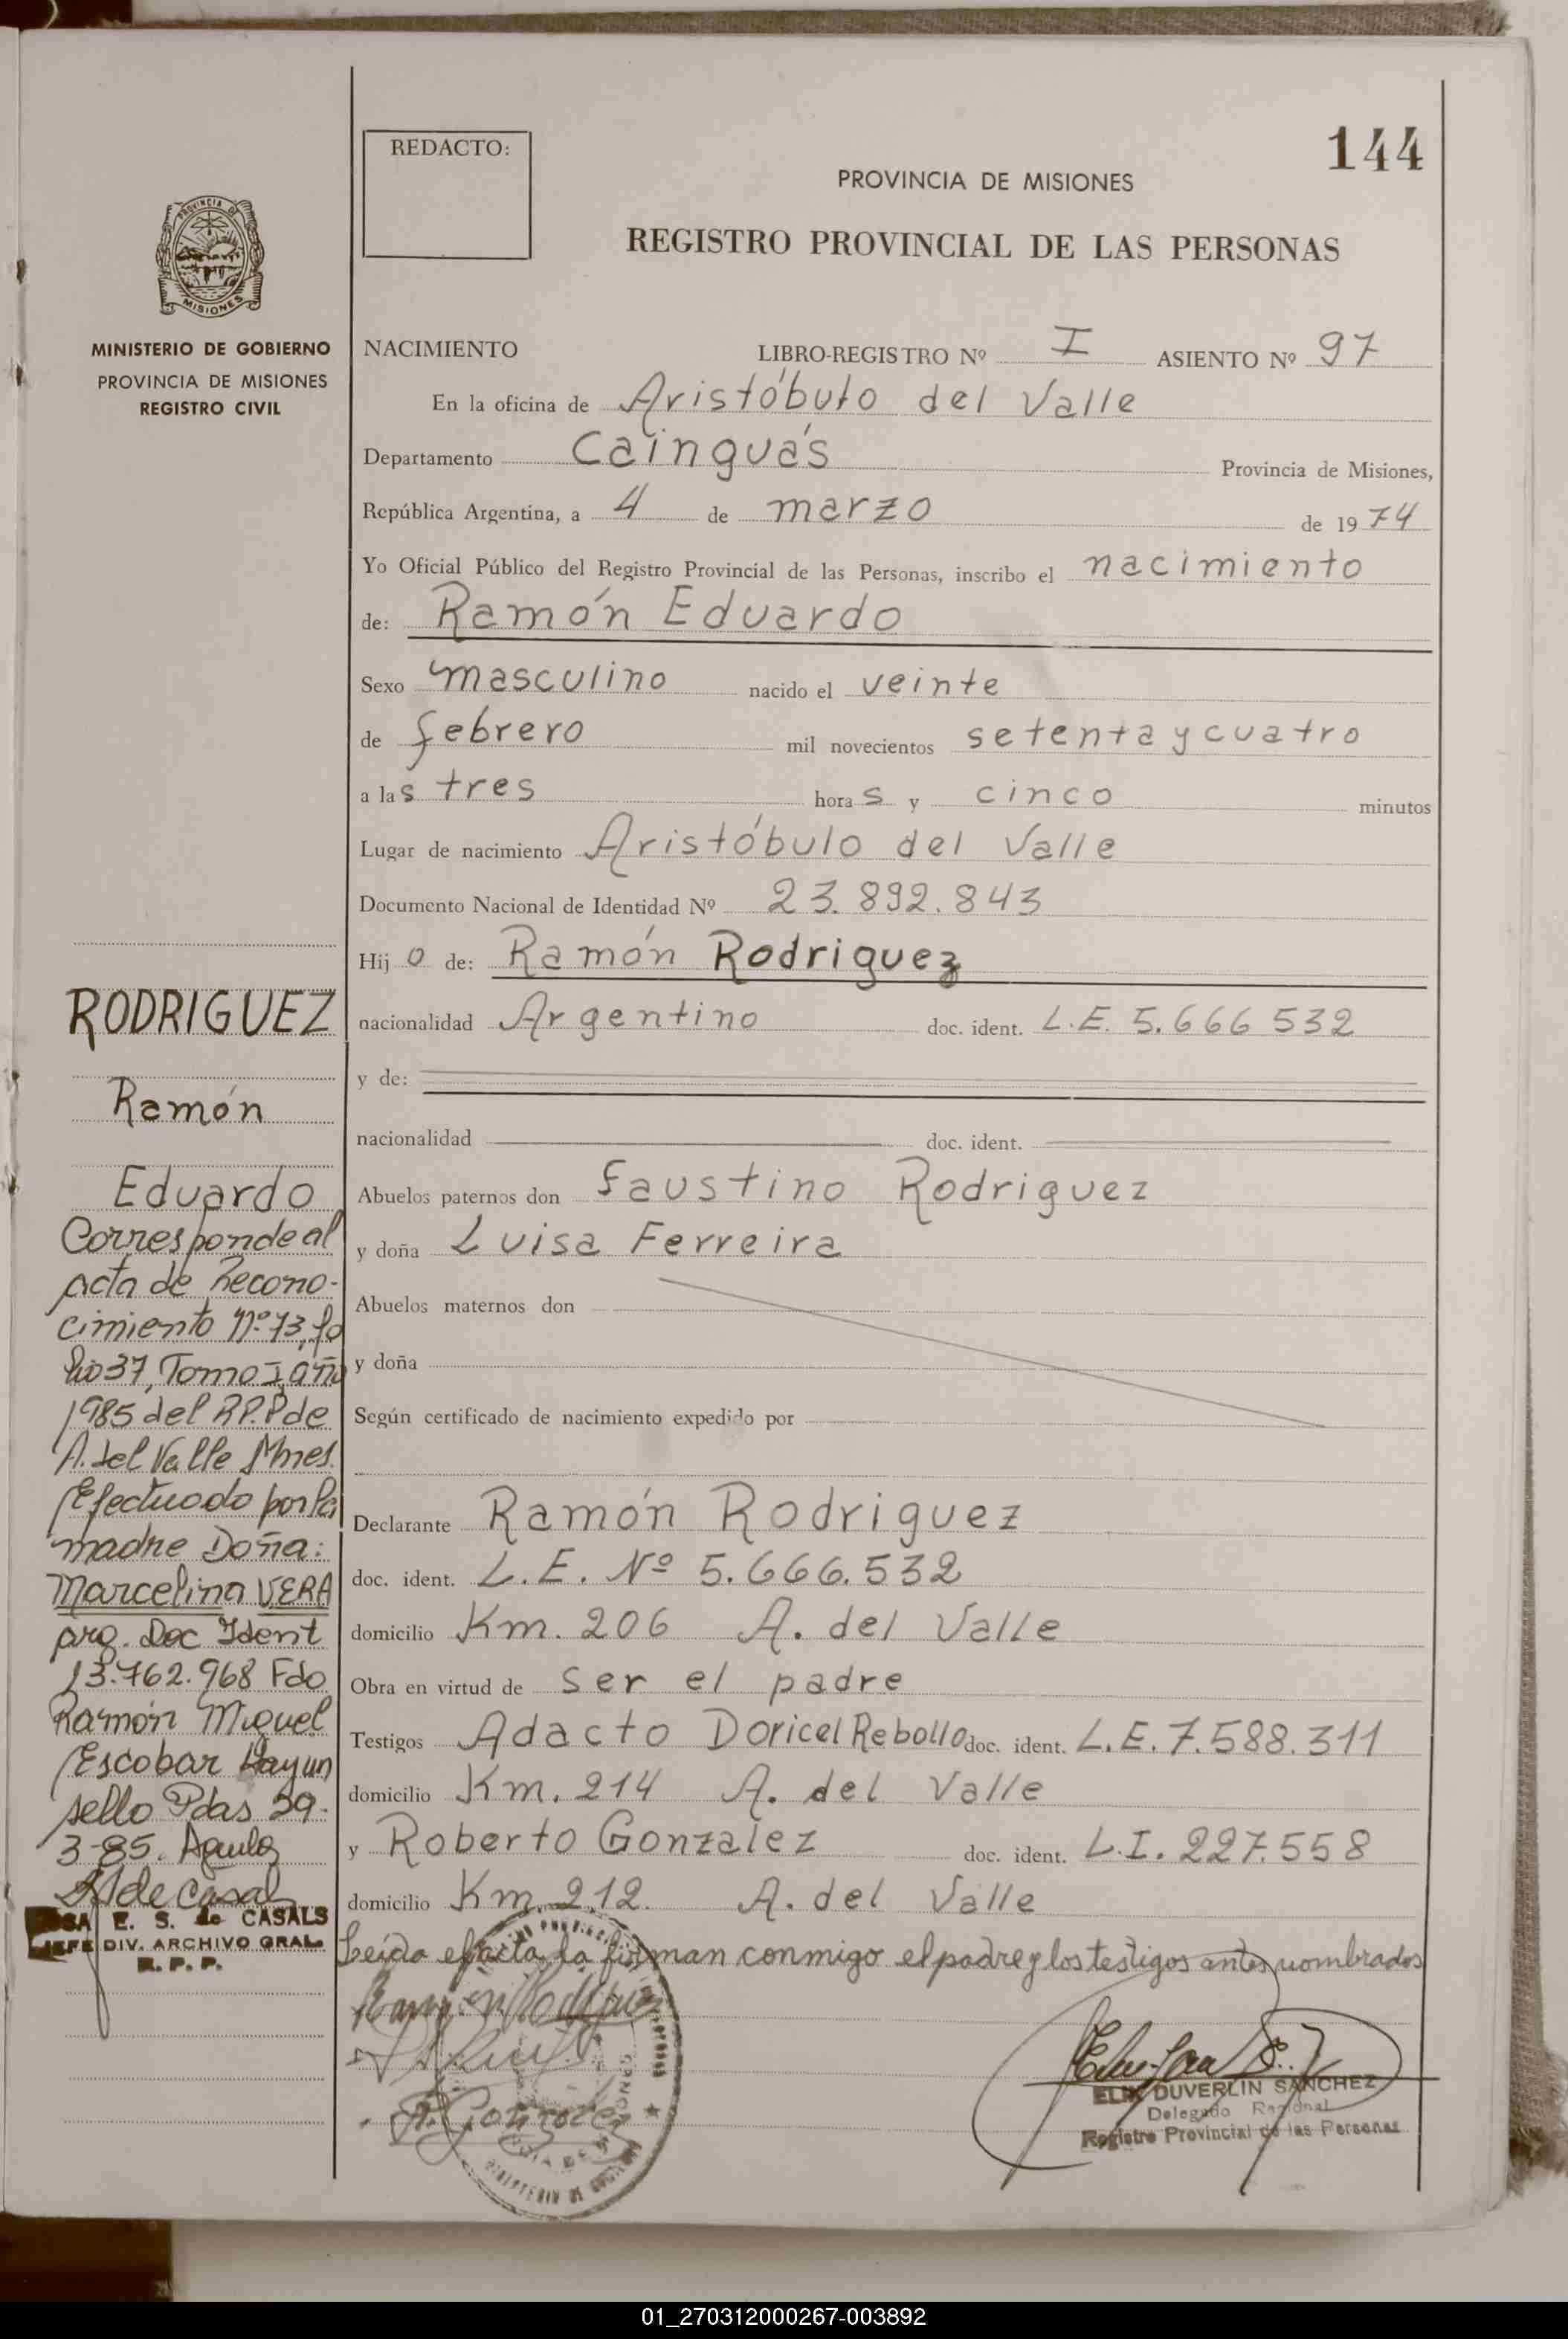 144
REDACTO:
PROVINCIA DE MISIONES
REGISTRO PROVINCIAL DE LAS PERSONAS
PROVINCIA DE
MISIONES
MINISTERIO DE GOBIERNO
PROVINCIA DE MISIONES
REGISTRO CIVIL
NACIMIENTO LIBRO-REGISTRO Nº I ASIENTO Nº 97
En la oficina de Aristóbulo del Valle
Departamento Cainguás Provincia de Misiones,
República Argentina, a 4 de marzo de 1974
Yo Oficial Público del Registro Provincial de las Personas, inscribo el nacimiento
de: Ramón Eduardo
Sexo masculino nacido el veinte
de febrero mil novecientos setenta y cuatro
a las tres horas y cinco minutos
Lugar de nacimiento Aristóbulo del Valle
Documento Nacional de Identidad Nº 23.892.843
Hijo de: Ramón Rodriguez
nacionalidad Argentino doc. ident. L.E. 5.666 532
y de:
nacionalidad doc. ident.
Abuelos paternos don Faustino Rodriguez
y doña Luisa Ferreira
Abuelos maternos don
y doña
Según certificado de nacimiento expedido por
Declarante Ramón Rodriguez
doc. ident. L.E. Nº 5.666.532
domicilio Km. 206 A. del Valle
Obra en virtud de ser el padre
Testigos Adacto Doricel Rebollo doc. ident. L.E. 7.588.311
domicilio Km. 214 A. del Valle
y Roberto Gonzalez doc. ident. L.I. 227.558
domicilio Km. 212. A. del Valle
Leída el acta, la firman conmigo el padre y los testigos antes nombrados
ELIX DUVERLIN SANCHEZ
Delegado Regional
Registro Provincial de las Personas
RODRIGUEZ
Ramón
Eduardo
Corresponde al
acta de Recono-
cimiento Nº 73, fo
lio 37, Tomo I, año
1985 del R.P.P de
A. del Valle Mnes.
Efectuado por la
madre Doña:
Marcelina VERA
arg. Doc Ident
13.762.968 Fdo
Ramón Miguel
Escobar Hay un
sello Pdas 29-
3-85.
de Casals
E. S. de CASALS
JEFE DIV. ARCHIVO GRAL.
R. P. P.
01_270312000267-003892